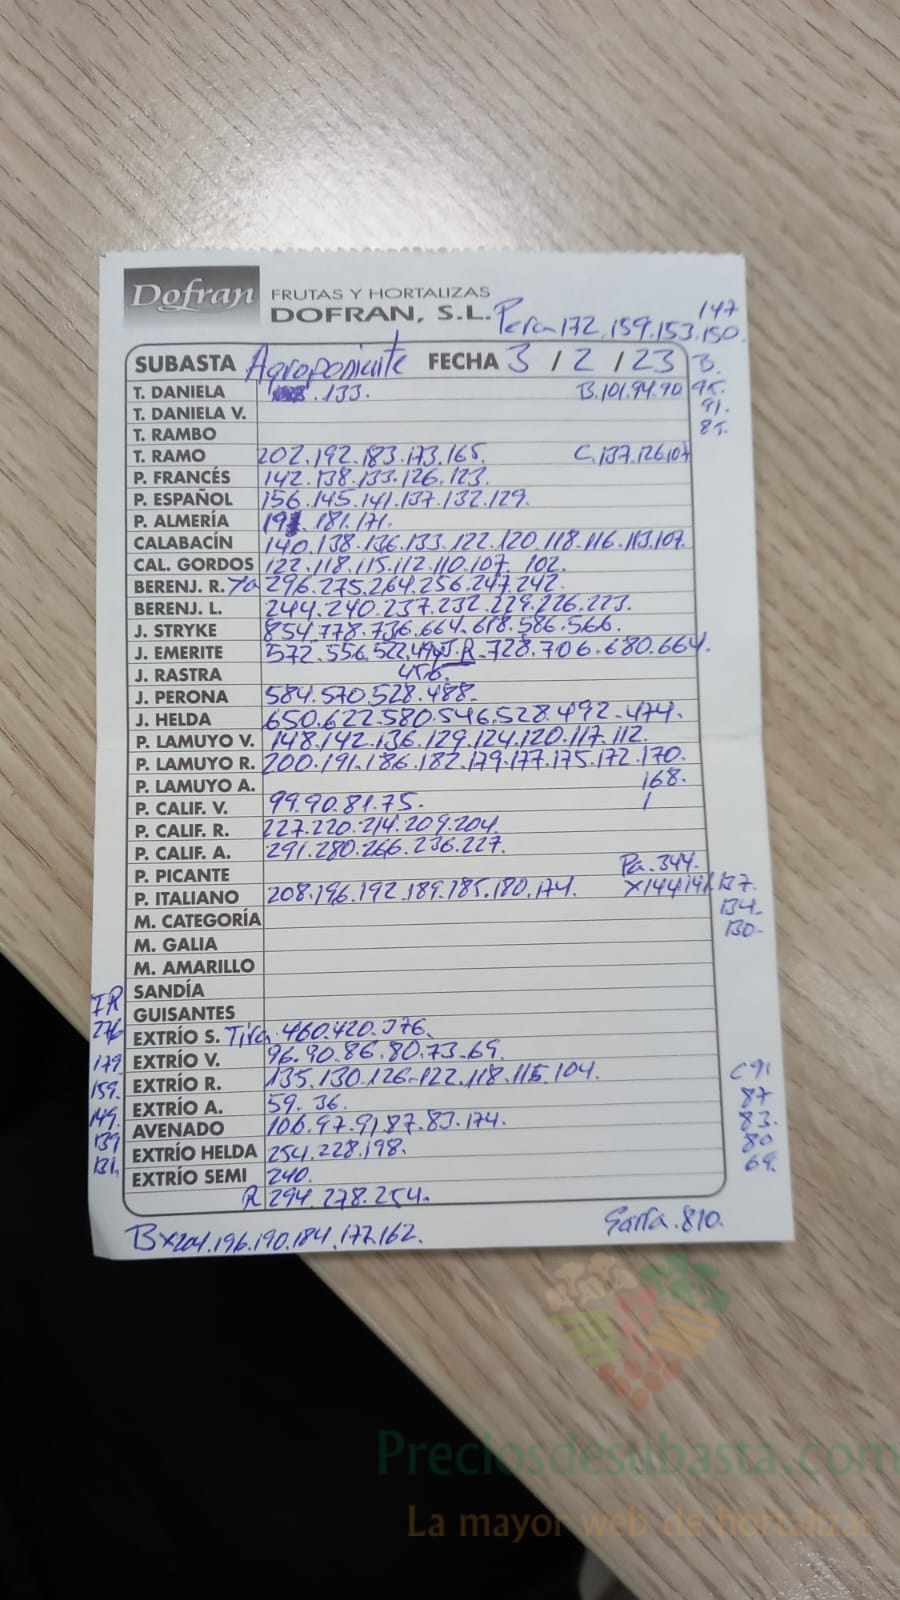 Dofran FRUTAS Y HORTALIZAS
DOFRAN, S.L. Pera 172.159.153.150.
147
SUBASTA Agroponiente FECHA 3 / 2 / 23 B.
T. DANIELA .133. B.101.94.90 95.
T. DANIELA V. 91.
T. RAMBO 85.
T. RAMO 202.192.183.173.165. C.137.126.107
P. FRANCÉS 142.138.133.126.123.
P. ESPAÑOL 156.145.141.137.132.129.
P. ALMERÍA 191.181.171.
CALABACÍN 140.138.136.133.122.120.118.116.113.107.
CAL. GORDOS 122.118.115.112.110.107. 102.
BERENJ. R. 296.275.264.256.247.242.
BERENJ. L. 244.240.237.232.229.226.223.
J. STRYKE 854.778.736.664.618.586.566.
J. EMERITE 572.556.522.494 J.R.728.706.680.664.
J. RASTRA 456.
J. PERONA 584.570.528.488.
J. HELDA 650.622.580.546.528.492.474.
P. LAMUYO V. 148.142.136.129.124.120.117.112.
P. LAMUYO R. 200.191.186.182.179.177.175.172.170.
P. LAMUYO A. 168.
P. CALIF. V. 99.90.81.75.
P. CALIF. R. 227.220.214.209.204.
P. CALIF. A. 291.280.266.236.227.
P. PICANTE Pa.344.
P. ITALIANO 208.196.192.189.185.180.174. X144.141.137.
M. CATEGORÍA 134.
M. GALIA 130.
M. AMARILLO
SANDÍA
IR
GUISANTES
276 EXTRÍO S. Tira 460.420.376.
179 EXTRÍO V. 96.90.86.80.73.69.
159. EXTRÍO R. 135.130.126.122.118.115.104. C 91
149. EXTRÍO A. 59.36. 87
139 AVENADO 106.97.91.87.83.174. 83.
131. EXTRÍO HELDA 254.228.198. 80
EXTRÍO SEMI 240. 69.
R 294.278.254.
Bx204.196.190.184.177.162. Garra.810.
Preciosdesubasta.com
La mayor web de hortalizas